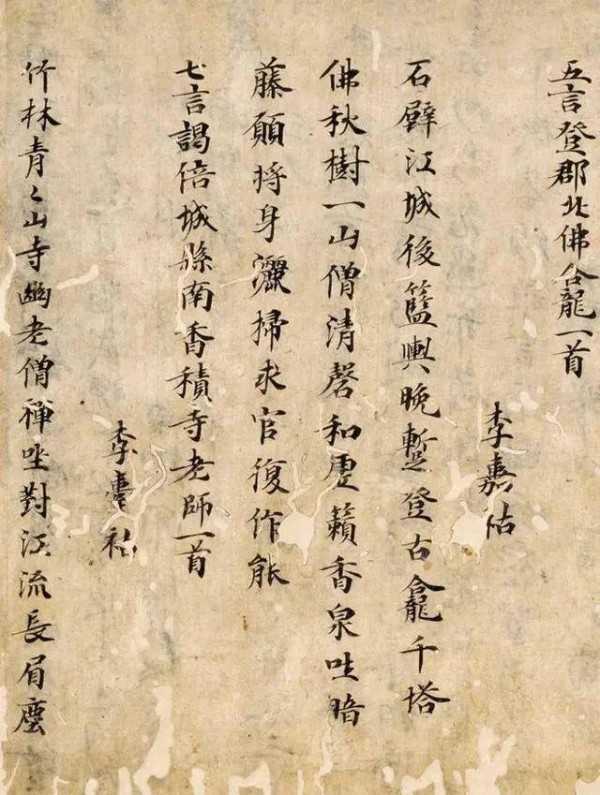 五言登郡北佛龕一首
李嘉祐
石壁江城後籃輿晚蹔登古龕千塔
佛秋樹一山僧清磬和虛籟香泉吐暗
藤願將身灑掃求官復作能
七言謁倍城縣南香積寺老師一首
李嘉祐
竹林青々山寺幽老僧禪坐對江流長眉塵